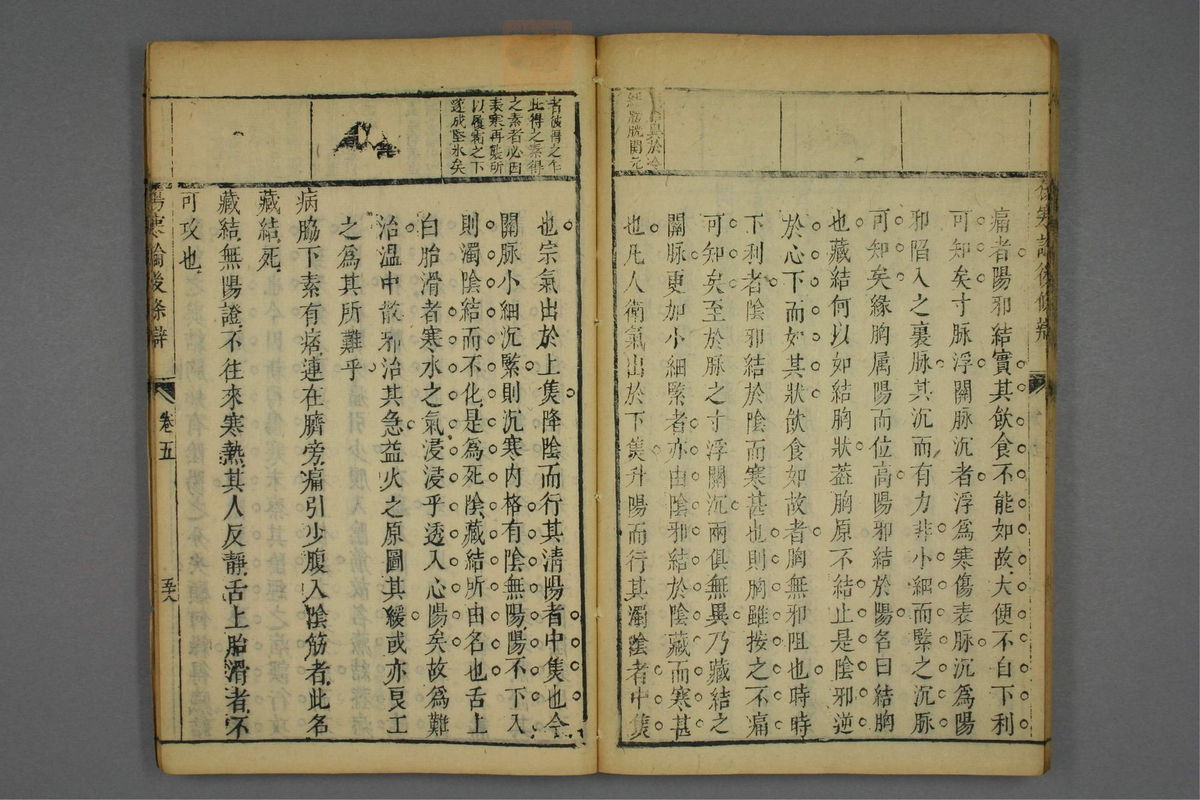 異於冷
結胸脫開元
痛者陽邪結實其飲食不能如故大便不自下利
可知矣寸脉浮關脉沉者浮爲寒傷表脉沉爲陽
邪陷入之裏脉其沉而有力非小細而緊之沉脉
可知矣緣胸属陽而位高陽邪結於陽名曰結胸
也藏結何以如結胸狀葢胸原不結止是陰邪逆
於心下而如其狀飲食如故者胸無邪阻也時時
下利者陰邪結於陰而寒甚也則胸雖按之不痛
可知矣至於脉之寸浮關沉兩俱無異乃藏結之
關脉更加小細緊者亦由陰邪結於陰藏而寒甚
也凡人衛氣出於下焦升陽而行其濁陰者中焦
者彼得之乍
此得之素得
之素者必因
表寒再襲所
以履霜之下
遂成堅氷矣
也宗氣出於上焦降陰而行其淸陽者中焦也今
關脉小細沉緊則沉寒內格有陰無陽陽不下入
則濁陰結而不化是爲死陰藏結所由名也舌上
白胎滑者寒水之氣浸浸乎透入心陽矣故爲難
治溫中散邪治其急益火之原圖其緩或亦良工
之爲其所難乎
病脇下素有痞連在臍旁痛引少腹入陰筋者此名
藏結死
藏結無陽證不往來寒熱其人反靜舌上胎滑者不
可攻也
傷寒論後條辯
卷五
五十八